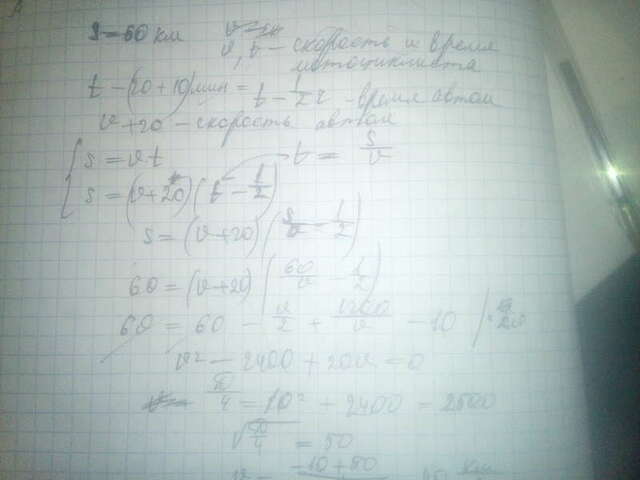 S = 60 км
v, t – скорость и время
мотоциклиста
t – (20 + 10) мин = t – 1/2 ч – время автом
v + 20 – скорость автом
s = vt
t = s/v
s = (v + 20)(t – 1/2)
s = (v + 20)(s/v – 1/2)
60 = (v + 20)(60/v – 1/2)
60 = 60 – v/2 + 1200/v – 10 | · 2v
v² – 2400 + 20v = 0
D/4 = 10² + 2400 = 2500
√D/4 = 50
–10 + 50
км